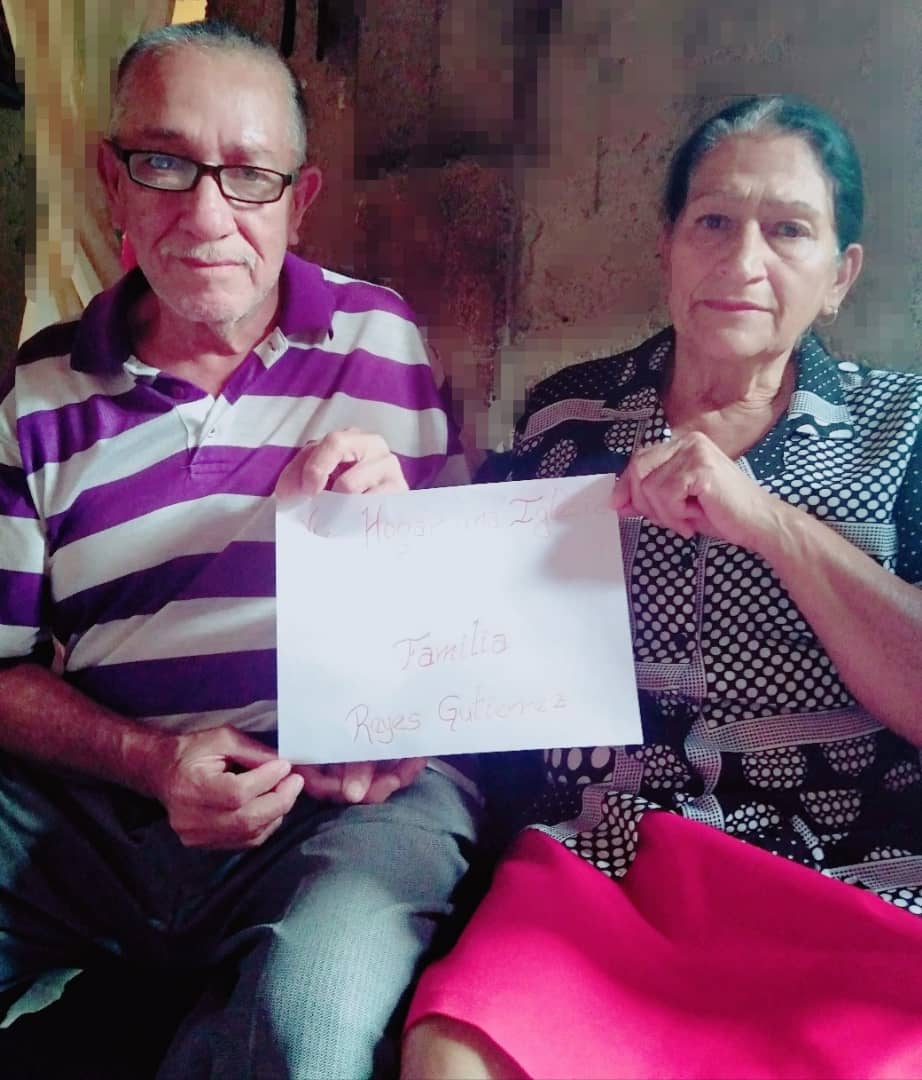 Hogar una Iglesia
Familia
Reyes Gutierrez